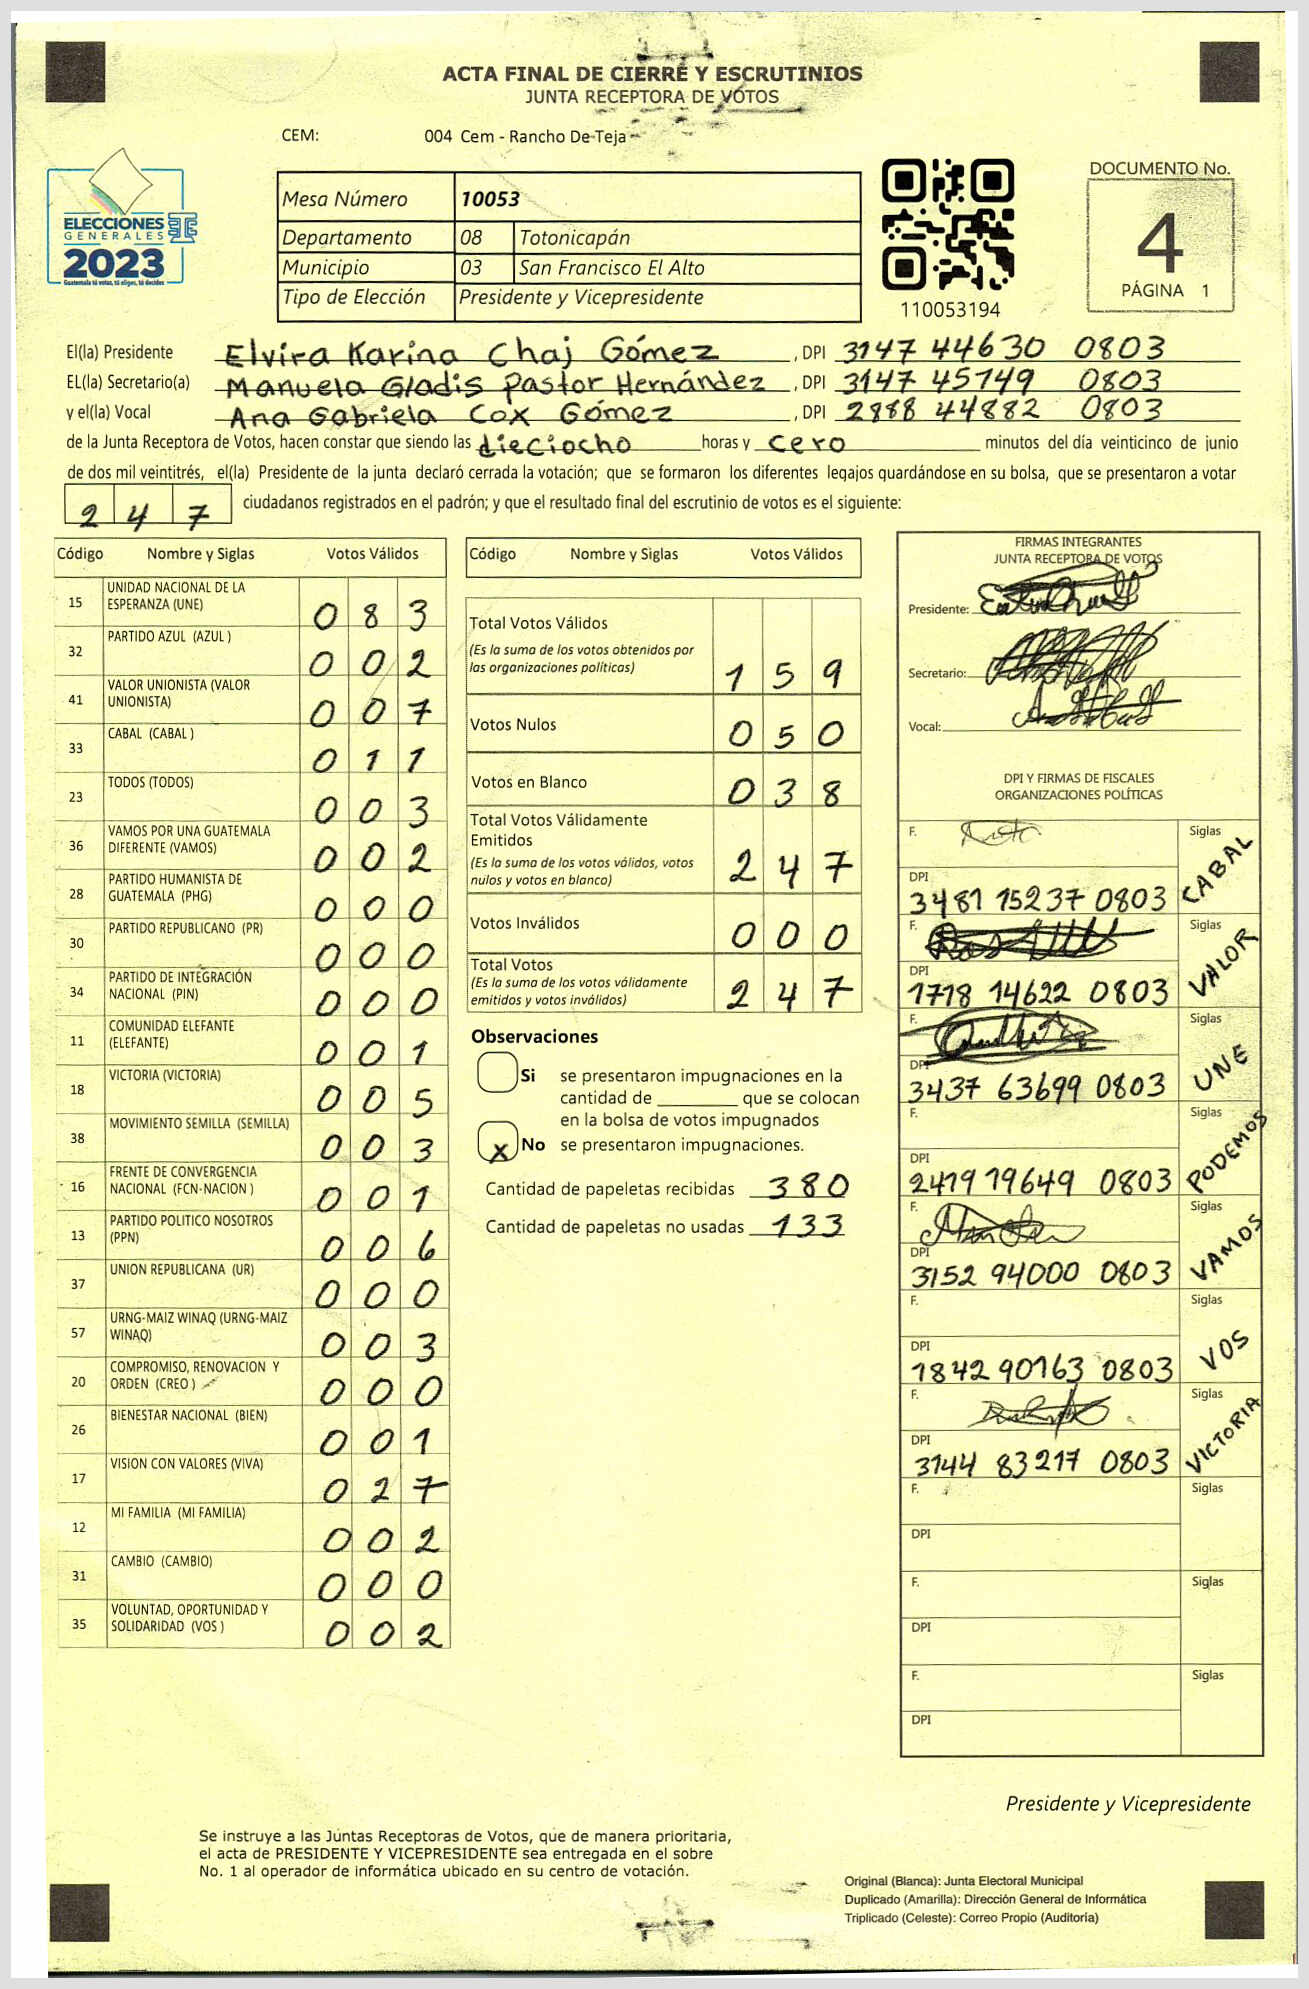 ACTA FINAL DE CIERRE Y ESCRUTINIOS
JUNTA RECEPTORA DE VOTOS
CEM: 004 Cem - Rancho De Teja
ELECCIONES
GENERALES
2023
Guatemala tú votas, tú eliges, tú decides
Mesa Número 10053
Departamento 08 Totonicapán
Municipio 03 San Francisco El Alto
Tipo de Elección Presidente y Vicepresidente
110053194
DOCUMENTO No.
4
PÁGINA 1
El(la) Presidente Elvira Karina Chaj Gómez , DPI 3147 44630 0803
EL(la) Secretario(a) Manuela Gladis Pastor Hernández , DPI 3147 45749 0803
y el(la) Vocal Ana Gabriela Cox Gómez , DPI 2888 44882 0803
de la Junta Receptora de Votos, hacen constar que siendo las dieciocho horas y cero minutos del día veinticinco de junio
de dos mil veintitrés, el(la) Presidente de la junta declaró cerrada la votación; que se formaron los diferentes legajos quardándose en su bolsa, que se presentaron a votar
2 4 7 ciudadanos registrados en el padrón; y que el resultado final del escrutinio de votos es el siguiente:
Código Nombre y Siglas Votos Válidos
15 UNIDAD NACIONAL DE LA ESPERANZA (UNE) 0 8 3
32 PARTIDO AZUL (AZUL ) 0 0 2
41 VALOR UNIONISTA (VALOR UNIONISTA) 0 0 7
33 CABAL (CABAL ) 0 1 1
23 TODOS (TODOS) 0 0 3
36 VAMOS POR UNA GUATEMALA DIFERENTE (VAMOS) 0 0 2
28 PARTIDO HUMANISTA DE GUATEMALA (PHG) 0 0 0
30 PARTIDO REPUBLICANO (PR) 0 0 0
34 PARTIDO DE INTEGRACIÓN NACIONAL (PIN) 0 0 0
11 COMUNIDAD ELEFANTE (ELEFANTE) 0 0 1
18 VICTORIA (VICTORIA) 0 0 5
38 MOVIMIENTO SEMILLA (SEMILLA) 0 0 3
16 FRENTE DE CONVERGENCIA NACIONAL (FCN-NACION ) 0 0 1
13 PARTIDO POLITICO NOSOTROS (PPN) 0 0 6
37 UNION REPUBLICANA (UR) 0 0 0
57 URNG-MAIZ WINAQ (URNG-MAIZ WINAQ) 0 0 3
20 COMPROMISO, RENOVACION Y ORDEN (CREO ) 0 0 0
26 BIENESTAR NACIONAL (BIEN) 0 0 1
17 VISION CON VALORES (VIVA) 0 2 7
12 MI FAMILIA (MI FAMILIA) 0 0 2
31 CAMBIO (CAMBIO) 0 0 0
35 VOLUNTAD, OPORTUNIDAD Y SOLIDARIDAD (VOS ) 0 0 2
Código Nombre y Siglas Votos Válidos
Total Votos Válidos
(Es la suma de los votos obtenidos por
las organizaciones políticas) 1 5 9
Votos Nulos 0 5 0
Votos en Blanco 0 3 8
Total Votos Válidamente
Emitidos
(Es la suma de los votos válidos, votos
nulos y votos en blanco) 2 4 7
Votos Inválidos 0 0 0
Total Votos
(Es la suma de los votos válidamente
emitidos y votos inválidos) 2 4 7
Observaciones
Si se presentaron impugnaciones en la
cantidad de ________ que se colocan
en la bolsa de votos impugnados
x No se presentaron impugnaciones.
Cantidad de papeletas recibidas 380
Cantidad de papeletas no usadas 133
FIRMAS INTEGRANTES
JUNTA RECEPTORA DE VOTOS
Presidente:
Secretario:
Vocal:
DPI Y FIRMAS DE FISCALES
ORGANIZACIONES POLÍTICAS
F. Siglas
DPI 3481 15237 0803 CABAL
F. Siglas
DPI 1718 14622 0803 VALOR
F. Siglas
DPI 3437 63699 0803 UNE
F. Siglas
DPI 2419 19649 0803 PODEMOS
F. Siglas
DPI 3152 94000 0803 VAMOS
F. Siglas
DPI 1842 90163 0803 VOS
F. Siglas
DPI 3144 83217 0803 VICTORIA
F. Siglas
DPI
F. Siglas
DPI
F. Siglas
DPI
Presidente y Vicepresidente
Se instruye a las Juntas Receptoras de Votos, que de manera prioritaria,
el acta de PRESIDENTE Y VICEPRESIDENTE sea entregada en el sobre
No. 1 al operador de informática ubicado en su centro de votación.
Original (Blanca): Junta Electoral Municipal
Duplicado (Amarilla): Dirección General de Informática
Triplicado (Celeste): Correo Propio (Auditoría)